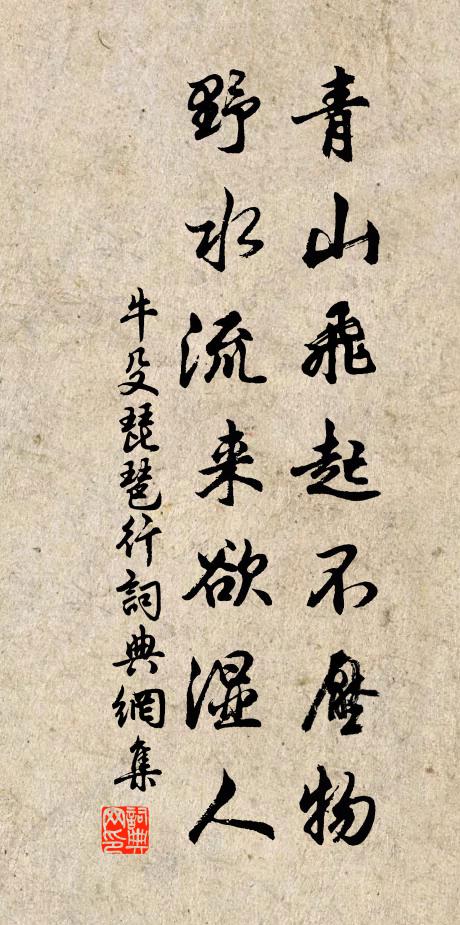 青山飛起不壓物
野水流来欲湿人
牛殳琵琶行詞典網集
詞典网印